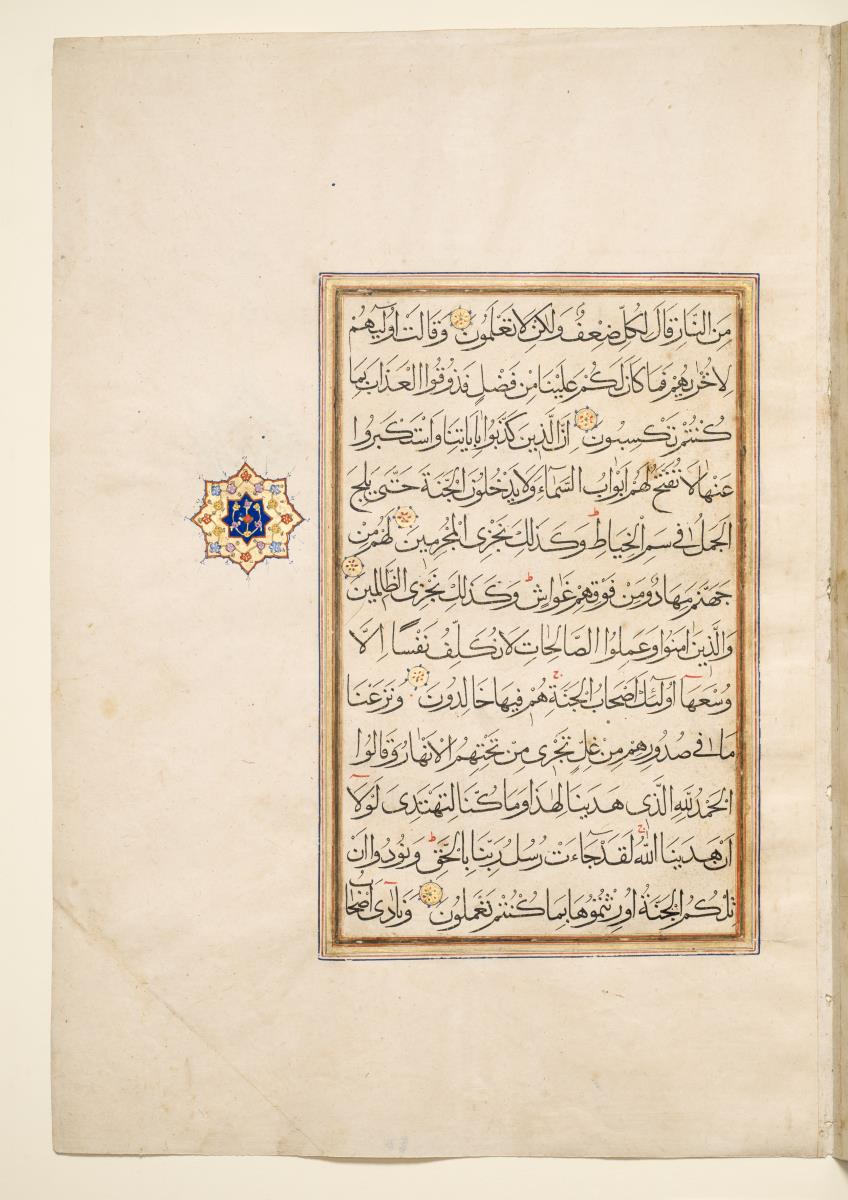 مِنَ النَّارِ قَالَ لِكُلٍّ ضِعْفٌ وَلَٰكِنْ لَا تَعْلَمُونَ وَقَالَتْ أُولَيٰهُمْ
لِأُخْرَيٰهُمْ فَمَا كَانَ لَكُمْ عَلَيْنَا مِنْ فَضْلٍ فَذُوقُوا الْعَذَابَ بِمَا
كُنْتُمْ تَكْسِبُونَ اِنَّ الَّذِينَ كَذَّبُوا بِاٰيَاتِنَا وَاسْتَكْبَرُوا
عَنْهَا لَا تُفَتَّحُ لَهُمْ اَبْوَابُ السَّمَآءِ وَلَا يَدْخُلُونَ الْجَنَّةَ حَتّٰى يَلِجَ
الْجَمَلُ فِي سَمِّ الْخِيَاطِ ط وَكَذٰلِكَ نَجْزِي الْمُجْرِمِينَ لَهُمْ مِنْ
جَهَنَّمَ مِهَادٌ وَمِنْ فَوْقِهِمْ غَوَاشٍ ط وَكَذٰلِكَ نَجْزِي الظَّالِمِينَ
وَالَّذِينَ اٰمَنُوا وَعَمِلُوا الصَّالِحَاتِ لَا نُكَلِّفُ نَفْسًا اِلَّا
وُسْعَهَا اُولٰٓئِكَ اَصْحَابُ الْجَنَّةِ ج هُمْ فِيهَا خَالِدُونَ وَنَزَعْنَا
مَا فِي صُدُورِهِمْ مِنْ غِلٍّ تَجْرِي مِنْ تَحْتِهِمُ الْاَنْهَارُ وَقَالُوا
الْحَمْدُ لِلّٰهِ الَّذِي هَدَيٰنَا لِهٰذَا وَمَا كُنَّا لِنَهْتَدِيَ لَوْلَا
اَنْ هَدَيٰنَا اللّٰهُ ج لَقَدْ جَآءَتْ رُسُلُ رَبِّنَا بِالْحَقِّ ط وَنُودُوا اَنْ
تِلْكُمُ الْجَنَّةُ اُورِثْتُمُوهَا بِمَا كُنْتُمْ تَعْمَلُونَ وَنَادٰى اَصْحَابُ